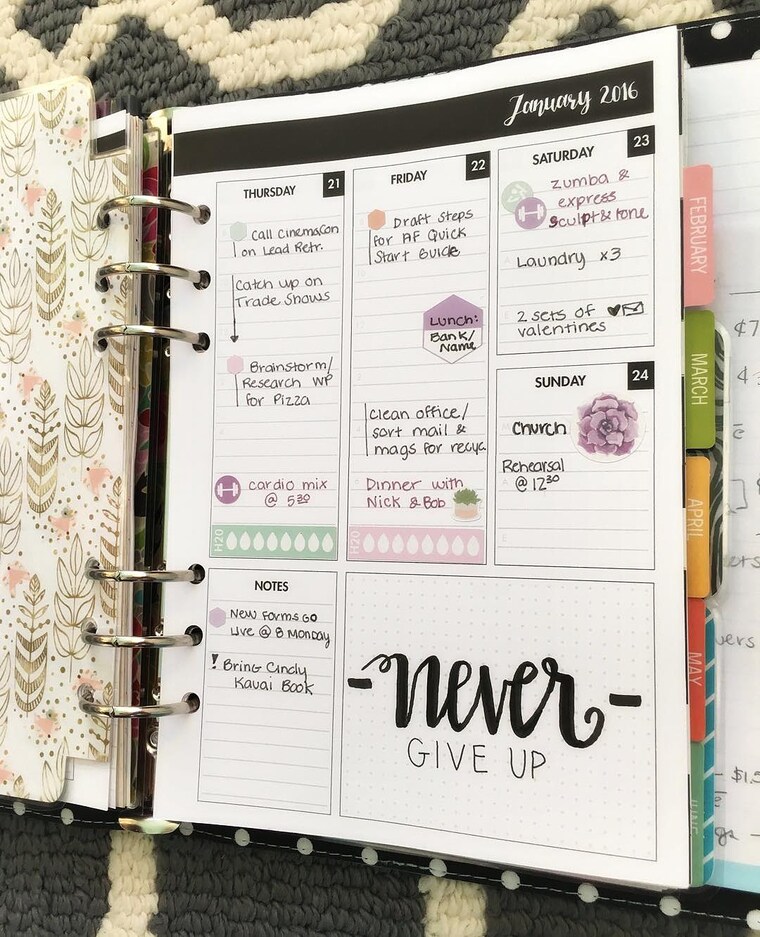 January 2016
THURSDAY 21
Call CinemaCon
on Lead Retr.
Catch up on
Trade Shows
Brainstorm/
Research WP
for Pizza
cardio mix
@ 5:30
H20
FRIDAY 22
Draft Steps
for AF Quick
Start Guide
Lunch:
Bank/
Name
Clean office/
sort mail &
mags for recyc
Dinner with
Nick & Bob
H20
SATURDAY 23
Zumba &
express
Sculpt & tone
Laundry x3
2 sets of
valentines
SUNDAY 24
Church
Rehearsal
@ 12:30
NOTES
New Forms GO
Live @ 8 Monday
! Bring Cindy
Kauai Book
- never -
GIVE UP
FEBRUARY
MARCH
APRIL
MAY
JUNE